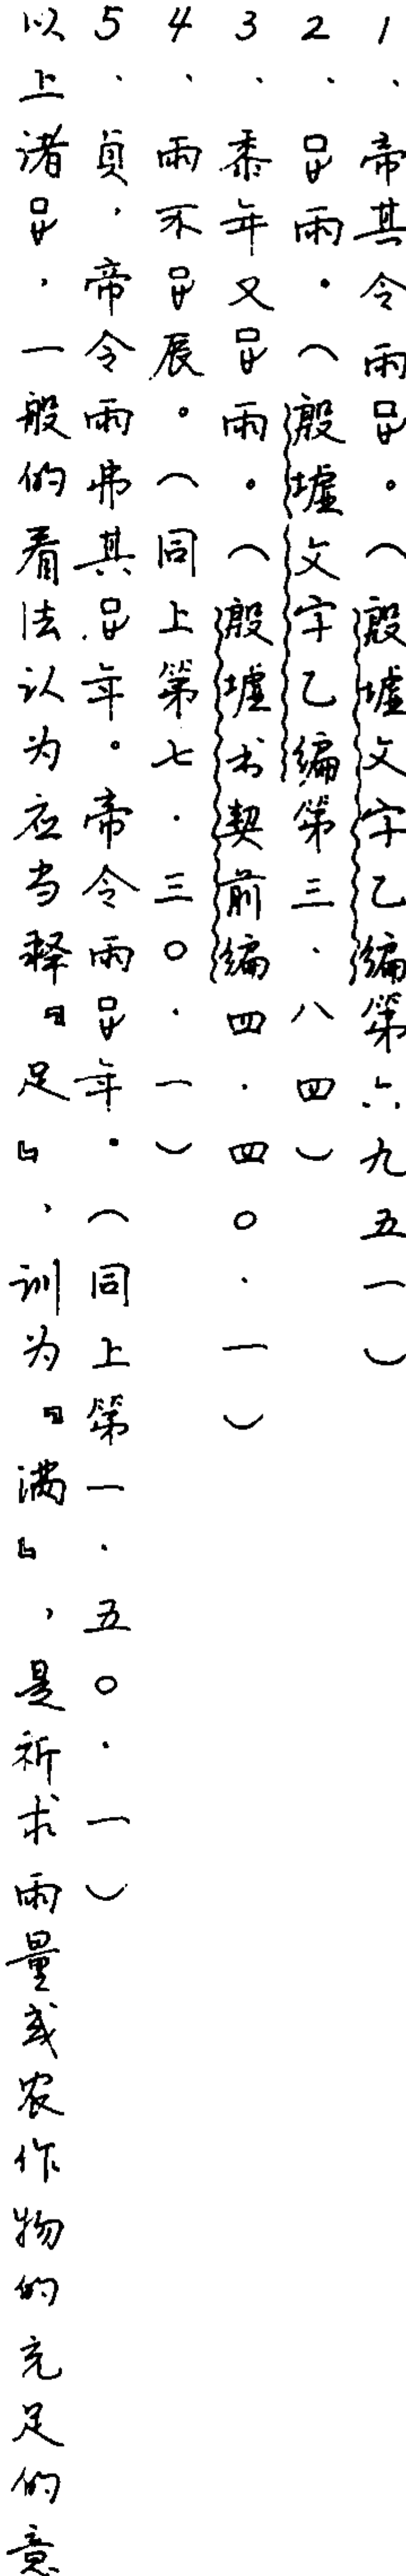 1、帝其令雨𠯁。（殷墟文字乙编第六九五一）
2、𠯁雨。（殷墟文字乙编第三·八四）
3、黍年又𠯁雨。（殷墟书契前编四·四〇·一）
4、雨不𠯁辰。（同上第七·三〇·一）
5、貞，帝令雨弗其𠯁年。帝令雨𠯁年。（同上第一·五〇·一）
以上诸𠯁，一般的看法认为应当释『足』，训为『满』，是祈求雨量或农作物的充足的意